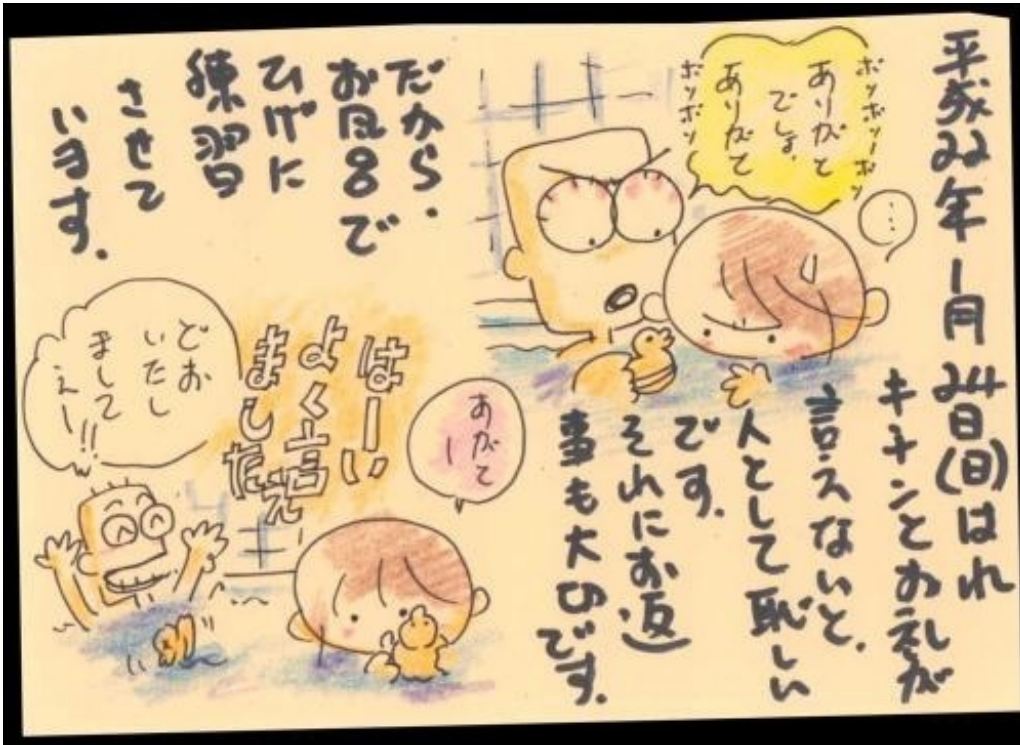 平成22年1月24日(日)はれ
キチンとお礼が
言えないと、
人として恥しい
です。
それにお返
事も大切です。
ポンポンーポン
ありがと
でしょ、
ありがて
ポンポン
…
だから、
お風呂で
ひげに
練習
させて
います。
あがて
ー
はーい
よく言え
ました
どお
いたし
まして
ぇー!!